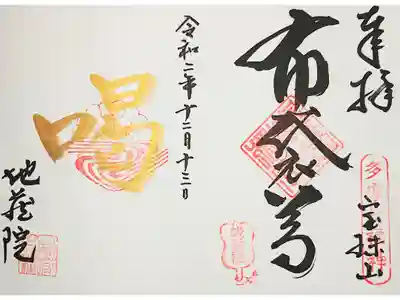 奉拝
宝珠山
布袋尊
令和二年十二月十三日
喝
地蔵院